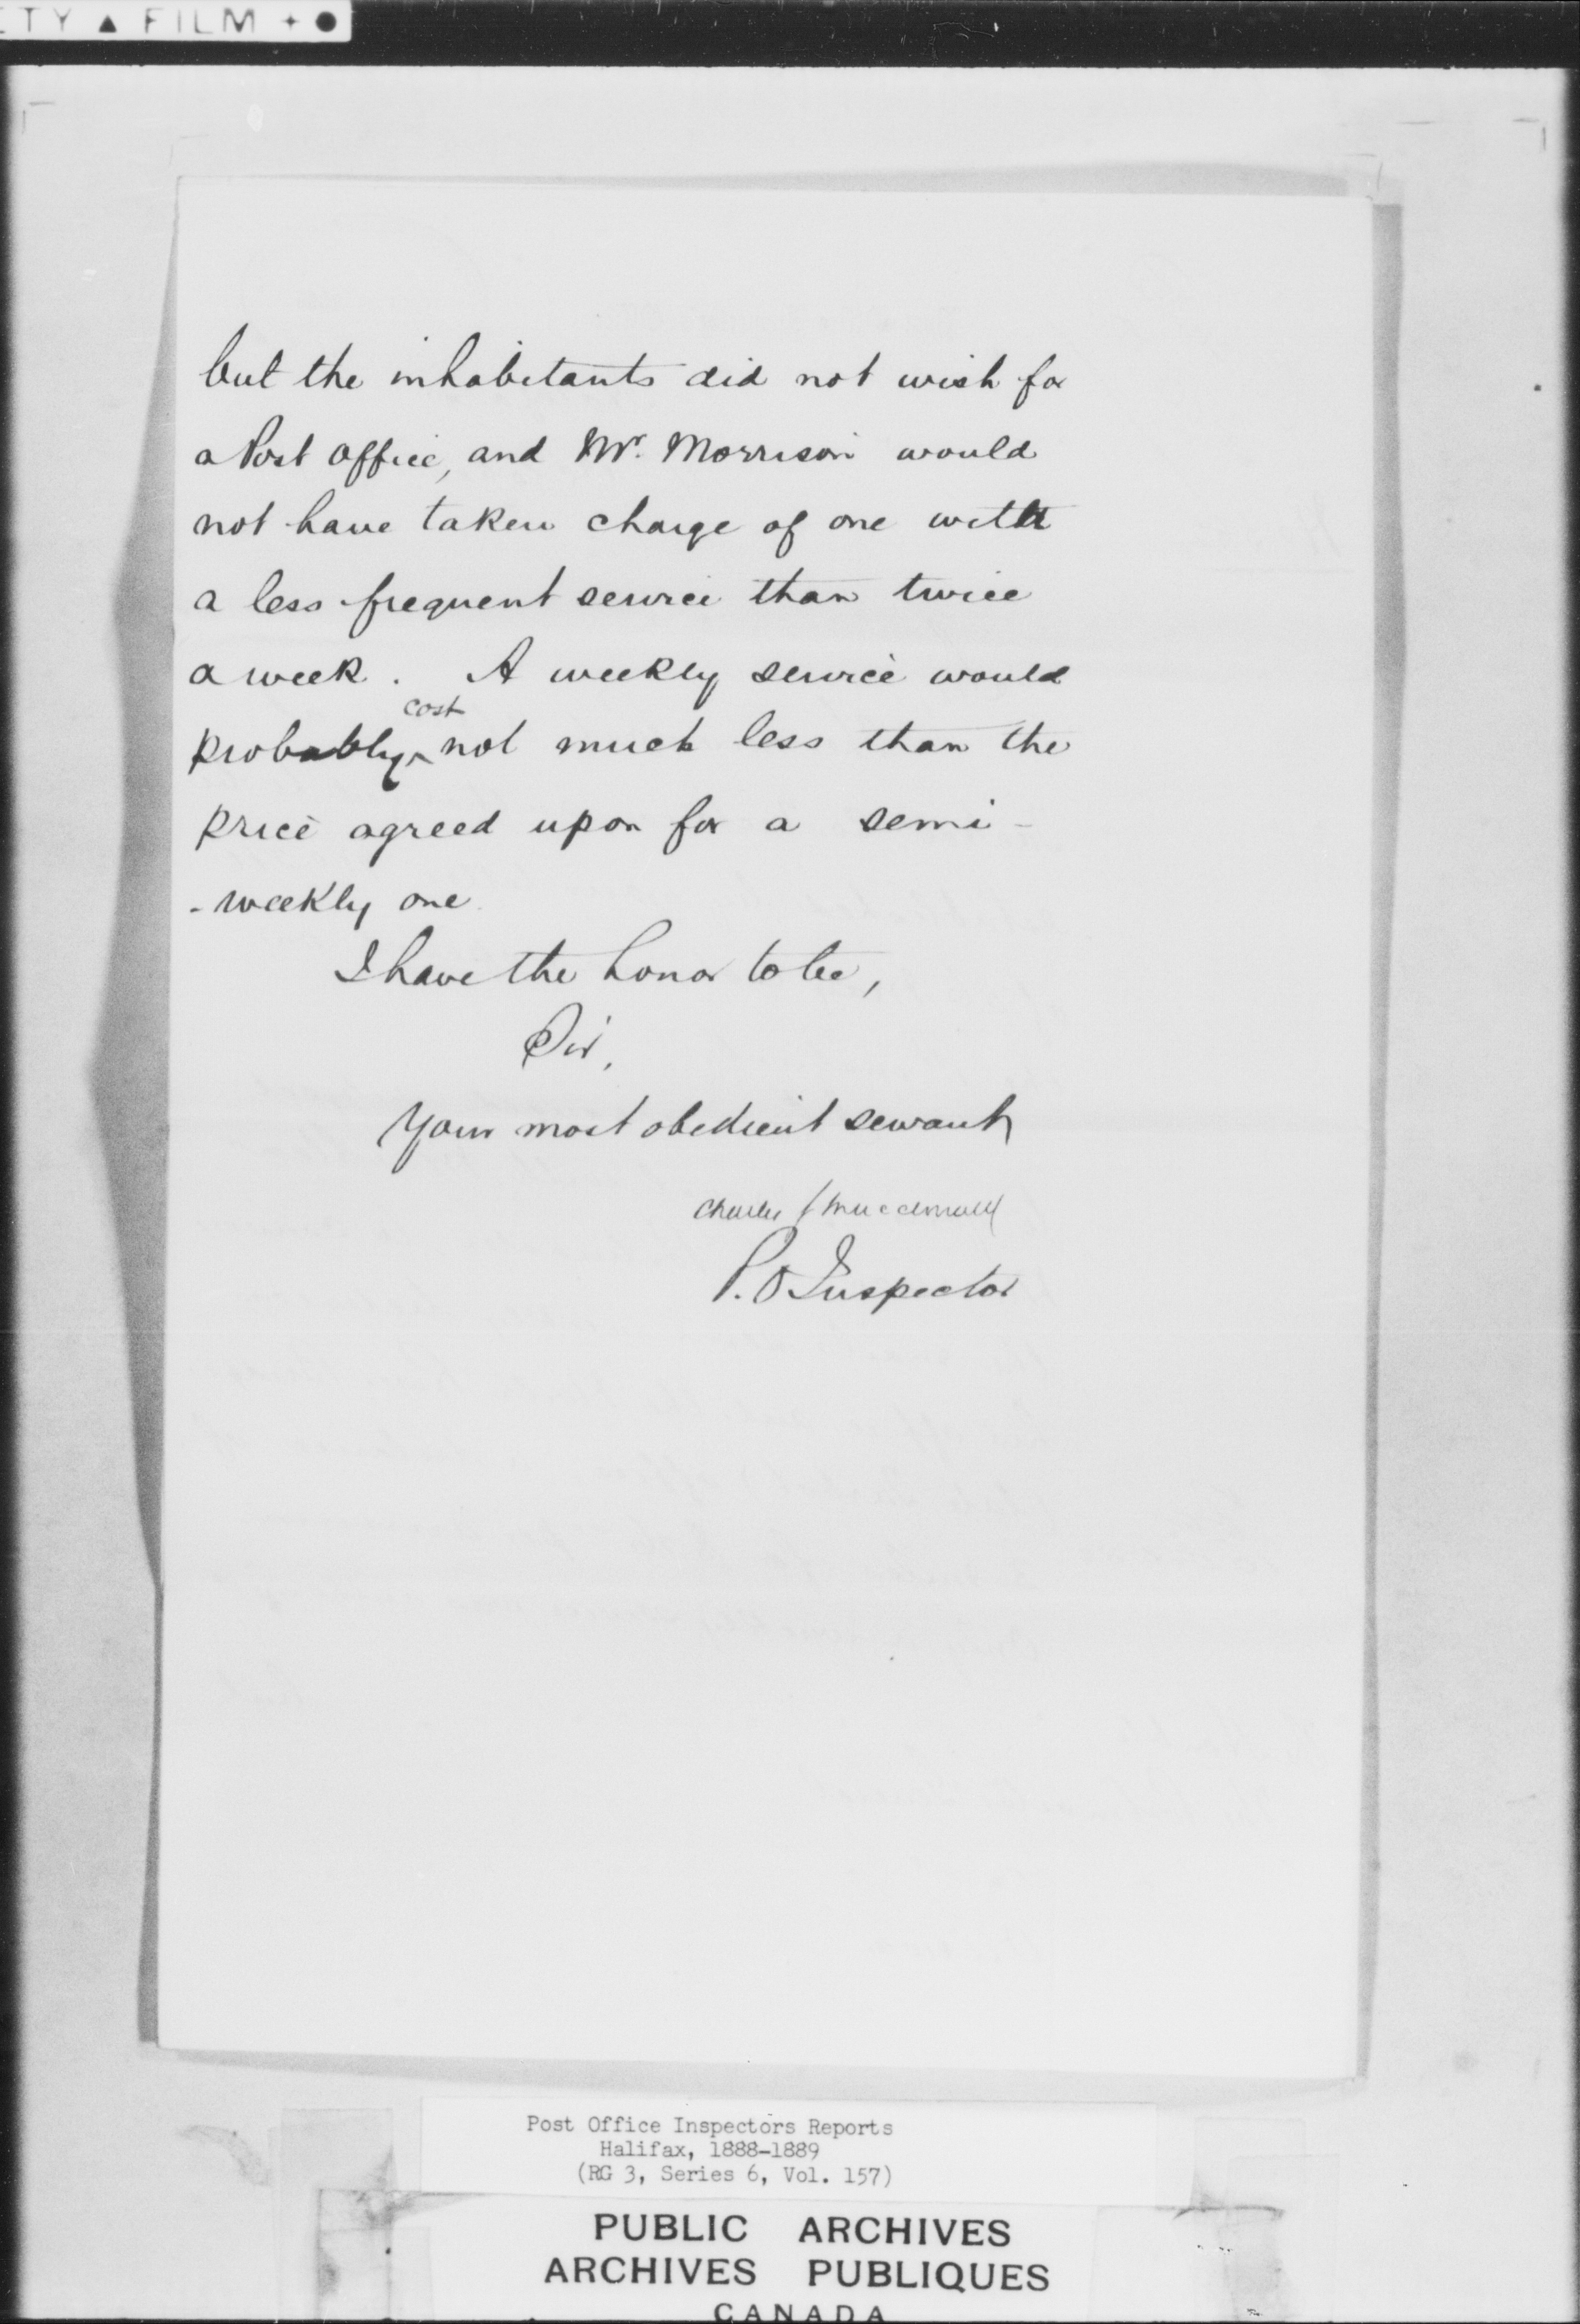 ETY ▲ FILM + ●
but the inhabitants did not wish for
a Post Office, and Mr. Morrison would
not have taken charge of one with
a less frequent service than twice
a week. A weekly service would
cost
probably ^ not much less than the
price agreed upon for a semi-
-weekly one.
I have the honor to be,
Sir,
Your most obedient servant
Charles J Macdonald
P.O Inspector
Post Office Inspectors Reports
Halifax, 1888-1889
(RG 3, Series 6, Vol. 157)
PUBLIC ARCHIVES
ARCHIVES PUBLIQUES
CANADA